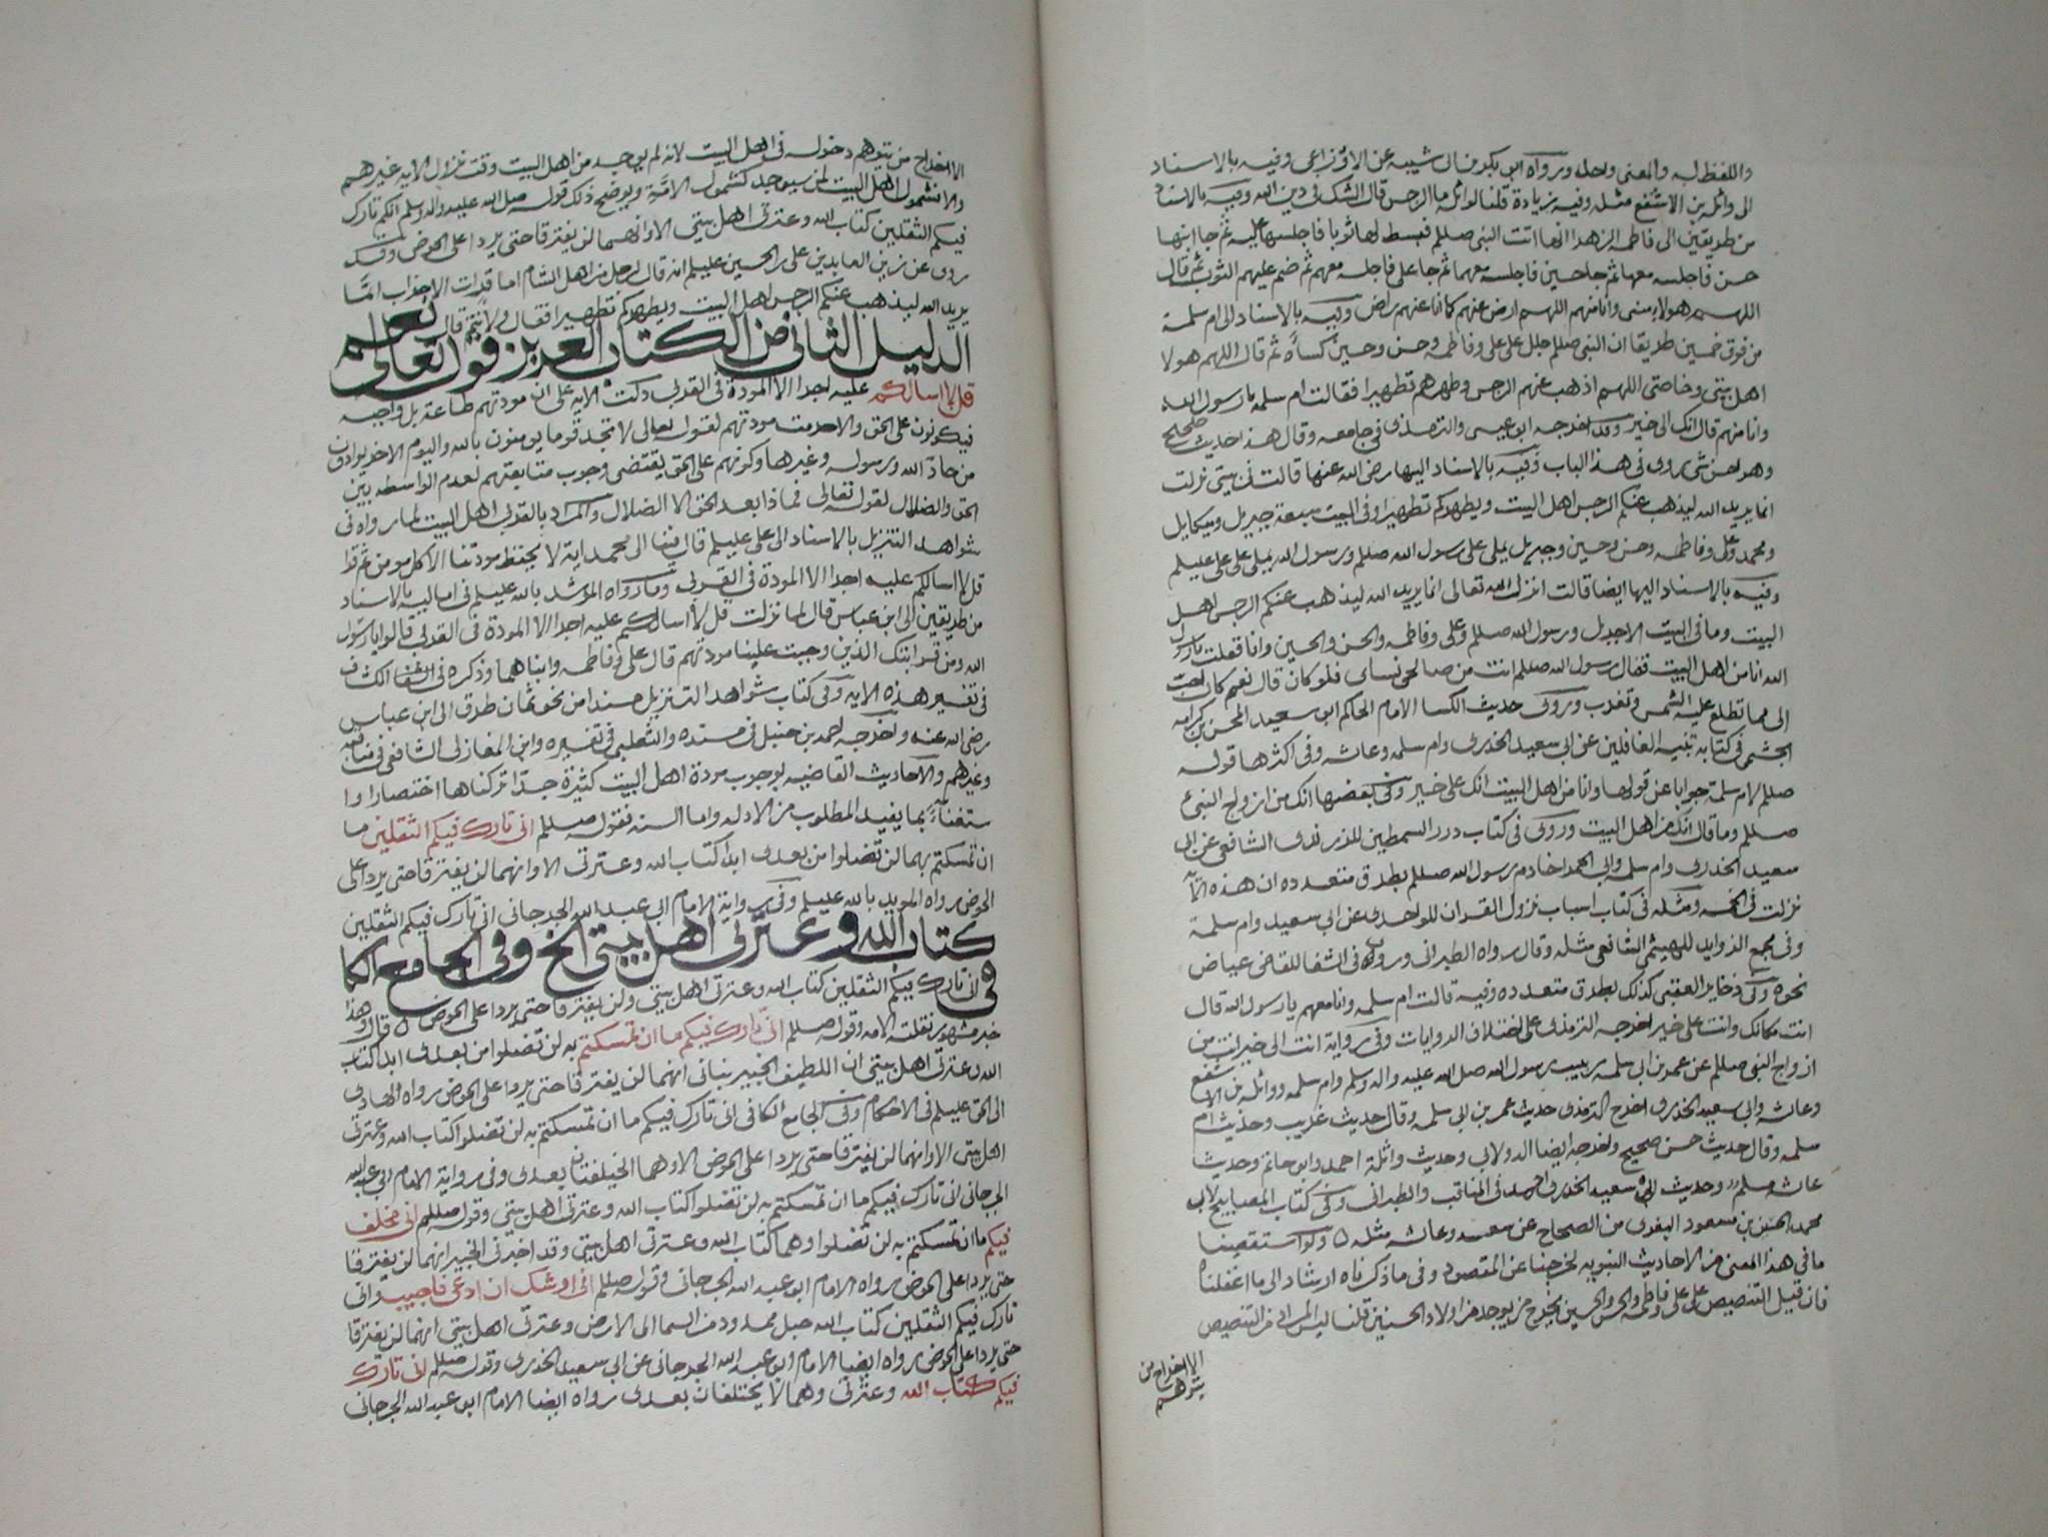 واللفظ له والمعنى واحد ورواه ابن بكر بن ابي شيبه عن الاوزاعي وفيه بالاسناد
الى واثله بن الاسقع مثله وفيه زيادة قلنا لواثله ما الرجس قال الشك في دين الله وفيه بالاسناد
من طريقين الى فاطمه الزهدا انها اتت النبي صللم فبسط لها ثوبا فاجلسها عليه ثم جا ابنها
حسن فاجلسه معها ثم جا حسين فاجلسه معهما ثم جا علي فاجلسه معهم ثم ضم عليهم الثوب ثم قال
اللهم هولاء مني وانا منهم اللهم ارض عنهم كما انا عنهم راض وفيه بالاسناد الى ام سلمة
من فوق خمسين طريقا ان النبي صللم جلل على علي وفاطمه وحسن وحسين كساءً ثم قال اللهم هولا
اهل بيتي وخاصتي اللهم اذهب عنهم الرجس وطهرهم تطهيرا فقالت ام سلمه يا رسول الله
وانا منهم قال انك الى خير وقد اخرجه ابو عيسى والترمذي في جامعه وقال هذا حديث صحيح
وهو احسن شي روى في هذا الباب وفيه بالاسناد اليها رضي الله عنها قالت في بيتي نزلت
انما يريد الله ليذهب عنكم الرجس اهل البيت ويطهركم تطهيرا وفي البيت سبعة جبريل وميكايل
ومحمد وعلي وفاطمه وحسن وحسين وجبريل يملي على رسول الله صللم ورسول الله يملي على علي عليلم
وفيه بالاسناد اليها ايضا قالت انزلت الله تعالى انما يريد الله ليذهب عنكم الرجس اهل
البيت وما في البيت الا جبريل ورسول الله صللم وعلي وفاطمه والحسن والحسين وانا فقلت يا رسول
الله انا من اهل البيت فقال رسول الله صللم انت من صالحي نساى فلو كان قال نعم كان احب
الي مما تطلع عليه الشمس وتغرب وروى حديث الكسا الامام الحاكم ابو سعيد المحسن بن كرامه
الجشمي في كتابه تنبيه الغافلين عن ابي سعيد الخدري وام سلمه وعاشه وفي اكثرها قوله
صللم لام سلمة جوابا عن قولها وانا من اهل البيت انك على خير وفي بعضها انك من ازواج النبي
صللم وما قال انك من اهل البيت وروى في كتاب درر السمطين للزرندى الشافعي عن ابي
سعيد الخدري وام سلمه وابي الحمرا خادم رسول الله صللم بطرق متعدده ان هذه الآيه
نزلت في الخمسه ومثله في كتاب اسباب نزول القران للواحدي عن ابي سعيد وام سلمة
وفي مجمع الزوايد للهيثمي الشافعي مثله وقال رواه الطبراني وروى في الشفا للقاضي عياض
نحوه وفي ذخاير العقبى كذلك بطرق متعدده وفيه قالت ام سلمه وانا معهم يا رسول الله قال
انت مكانك وانت على خير اخرجه الترمذي على اختلاف الروايات وفي رواية انت الى خير انت من
ازواج النبي صللم عن عمر بن ابي سلمه ربيب رسول الله صلى الله عليه واله وسلم وام سلمه وواثله بن الاسقع
وعاشه وابي سعيد الخدري اخرج الترمذي حديث عمر بن ابي سلمه وقال حديث غريب وحديث ام
سلمه وقال حديث حسن صحيح واخرجه ايضا الدولابي وحديث واثلة احمد وابو حاتم وحديث
عاشه مسلم وحديث ابي سعيد الخدري احمد في المناقب والطبراني وفي كتاب المصابيح لابي
محمد الحسين بن مسعود البغوي من الصحاح عن سعد وعاشه مثله ولو استقصينا
ما في هذا المعنى من الاحاديث النبويه لخرجنا عن المقصود وفي ما ذكرناه ارشاد الى ما اغفلناه
فان قيل التنصيص على علي وفاطمه والحسن والحسين يخرج من يوجد من اولاد الحسنين قلنا ليس المراد من التنصيص
الا اخراج من
يتوهم
الا اخراج من يتوهم دخوله في اهل البيت لانه لم يوجد من اهل البيت وقت نزول الايه غيرهم
والا فشمول اهل البيت لمن سيوجد كشمول الامّة ويوضح ذلك قوله صلى الله عليه واله وسلم اني تارك
فيكم الثقلين كتاب الله وعترتي اهل بيتي الا وانهما لن يفترقا حتى يردا على الحوض وقد
روى عن زين العابدين علي بن الحسين عليلم انه قال لرجل من اهل الشام اما قرات الاحزاب انما
يريد الله ليذهب عنكم الرجس اهل البيت ويطهركم تطهيرا فقال ولأنتم قال نعم
الدليل الثاني من الكتاب العزيز قوله تعالى
قل لا اسالكم عليه اجرا الا المودة في القربى دلت الايه على ان مودتهم طاعة بل واجبه
فيكونون على الحق والا حرمت مودتهم لقوله تعالى لا تجد قوما يومنون بالله واليوم الاخر يوادون
من حادّ الله ورسوله وغيرها وكونهم على الحق يقتضي وجوب متابعتهم لعدم الواسطه بين
الحق والضلال لقوله تعالى فماذا بعد الحق الا الضلال والمراد بالقربى اهل البيت لما رواه في
شواهد التنزيل بالاسناد الى علي عليلم قال فينا ال محمد اية لا يحفظ مودتنا الا كل مومن ثم قرا
قل لا اسالكم عليه اجرا الا المودة في القربى وما رواه المرشد بالله عليلم في اماليه بالاسناد
من طريقين الى ابن عباس قال لما نزلت قل لا اسالكم عليه اجرا الا المودة في القربى قالوا يا رسول
الله ومن قرابتك الذين وجبت علينا مودتهم قال علي وفاطمه وابناهما وذكره في الكشاف
في تفسير هذه الايه وفي كتاب شواهد التنزيل مسندا من نحو ثمان طرق الى ابن عباس
رضي الله عنه واخرجه احمد بن حنبل في مسنده والثعلبي في تفسيره وابن المغازلي الشافعي في مناقبه
وغيرهم والاحاديث القاضيه بوجوب مودة اهل البيت كثيرة جدّا تركناها اختصارا وا
ستغناءً بما يفيد المطلوب من الادله واما السنه فقوله صللم اني تارك فيكم الثقلين ما
ان تمسكتم بهما لن تضلوا من بعدي ابدا كتاب الله وعترتي الا وانهما لن يفترقا حتى يردا على
الحوض رواه المويد بالله عليلم وفي رواية الامام ابي عبد الله الجرجاني اني تارك فيكم الثقلين
كتاب الله وعترتي اهل بيتي الخ وفي الجامع الكا
في اني تارك فيكم الثقلين كتاب الله وعترتي اهل بيتي ولن يفترقا حتى يردا على الحوض قال وهذا
خبر مشهور نقلته الامه وقوله صللم اني تارك فيكم ما ان تمسكتم به لن تضلوا من بعدي ابدا كتاب
الله وعترتي اهل بيتي ان اللطيف الخبير نباني انهما لن يفترقا حتى يردا على الحوض رواه الهادي
الى الحق عليلم في الاحكام وفي الجامع الكافي اني تارك فيكم ما ان تمسكتم به لن تضلوا كتاب الله وعترتي
اهل بيتي الا وانهما لن يفترقا حتى يردا على الحوض الا وهما الخليفتان بعدي وفي رواية الامام ابي عبد الله
الجرجاني اني تارك فيكم ما ان تمسكتم به لن تضلوا كتاب الله وعترتي اهل بيتي وقوله صللم اني مخلف
فيكم ما ان تمسكتم به لن تضلوا وهما كتاب الله وعترتي اهل بيتي وقد اخبرني الخبير انهما لن يفترقا
حتى يردا على الحوض رواه الامام ابو عبد الله الجرجاني وقوله صللم اني اوشك ان ادعى فاجيب واني
تارك فيكم الثقلين كتاب الله حبل ممدود من السما الى الارض وعترتي اهل بيتي انهما لن يفترقا
حتى يردا على الحوض رواه ايضا الامام ابو عبد الله الجرجاني عن ابي سعيد الخدري وقوله صللم اني تارك
فيكم كتاب الله وعترتي وهما لا يختلفان بعدي رواه ايضا الامام ابو عبد الله الجرجاني